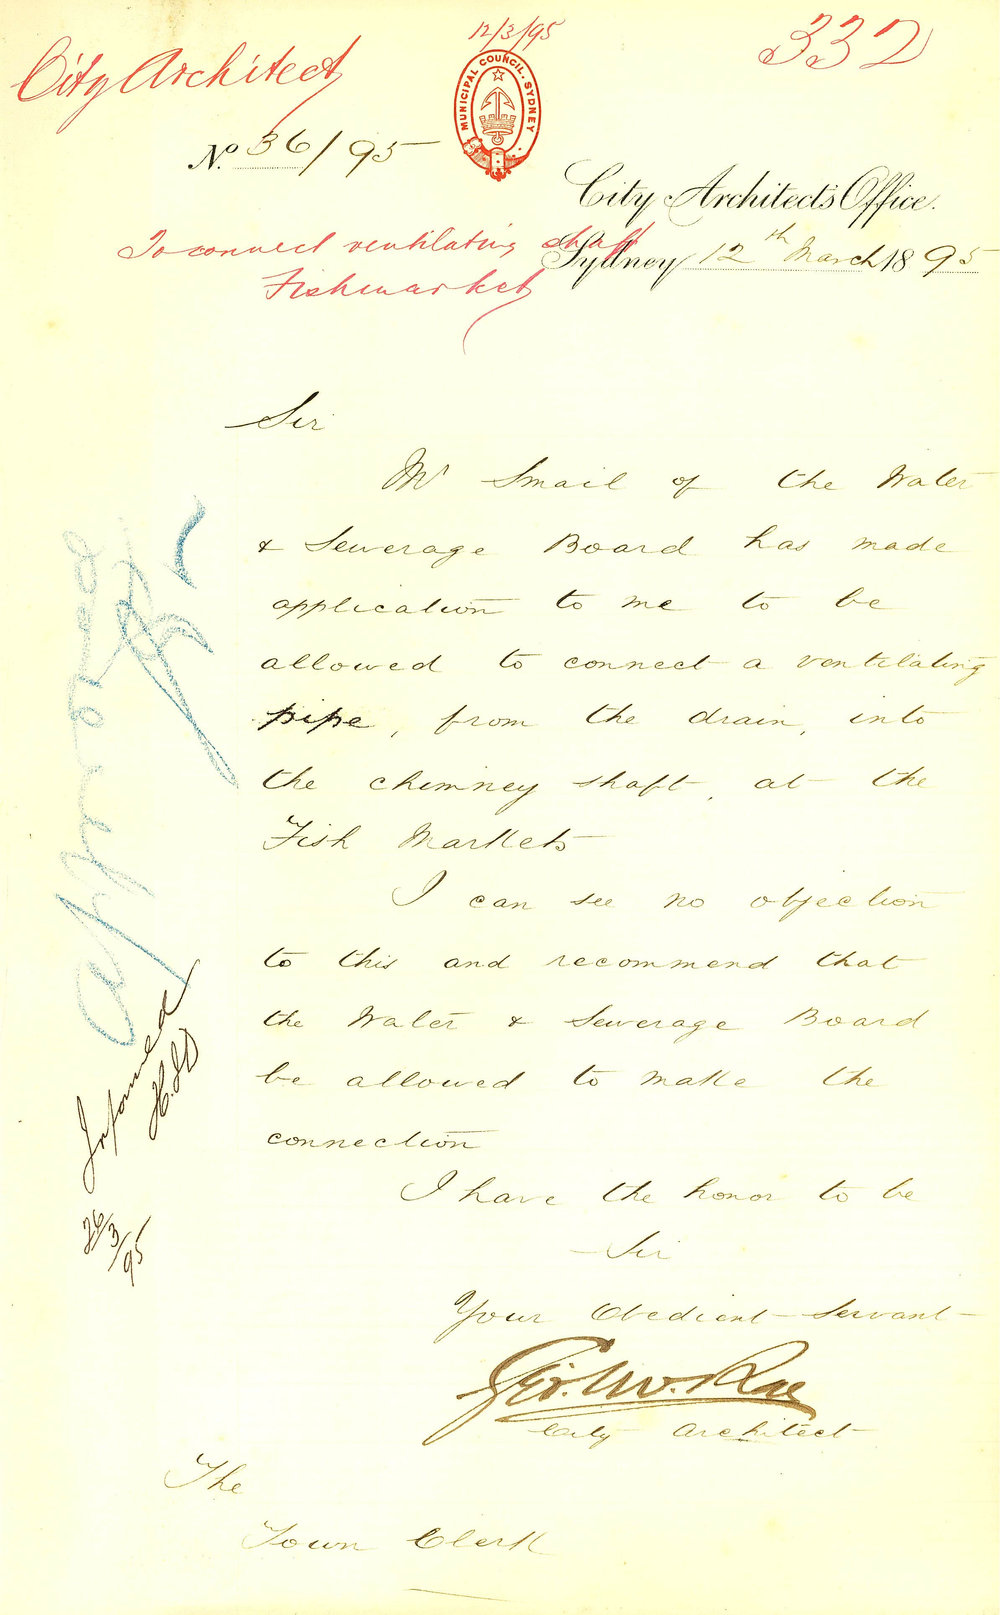 12/3/95
332
City Architect
MUNICIPAL COUNCIL. SYDNEY
No. 36/95
City Architect's Office.
To connect ventilating shaft
Sydney 12th March 1895
Fishmarket
Sir
Mr Smail of the Water
& Sewerage Board has made
application to me to be
allowed to connect a ventilating
pipe, from the drain, into
the chimney shaft, at the
Fish Markets
I can see no objection
to this and recommend that
the Water & Sewerage Board
be allowed to make the
connection
I have the honor to be
Sir
Your Obedient Servant
Geo. McRae
City Architect
The
Town Clerk
approved
Informed
26/3/95